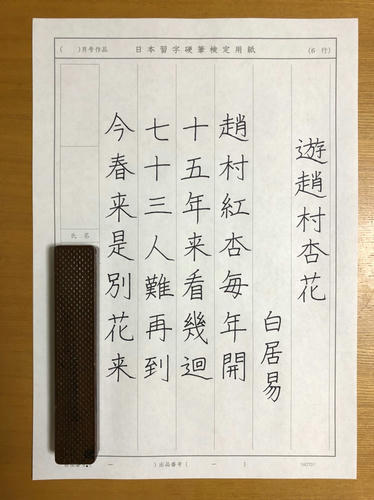 ( )月号作品 日本習字硬筆検定用紙 (6 行)
遊趙村杏花
白居易
趙村紅杏毎年開
十五年来看幾迴
七十三人難再到
今春来是別花来
氏名
)出品番号( ー )